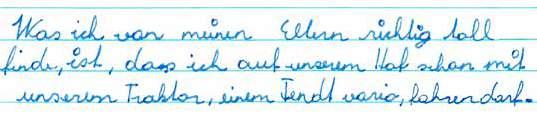 Was ich von meinen Eltern richtig toll
finde, ist, dass ich auf unserem Hof schon mit
unserem Traktor, einem Fendt vario, fahren darf.